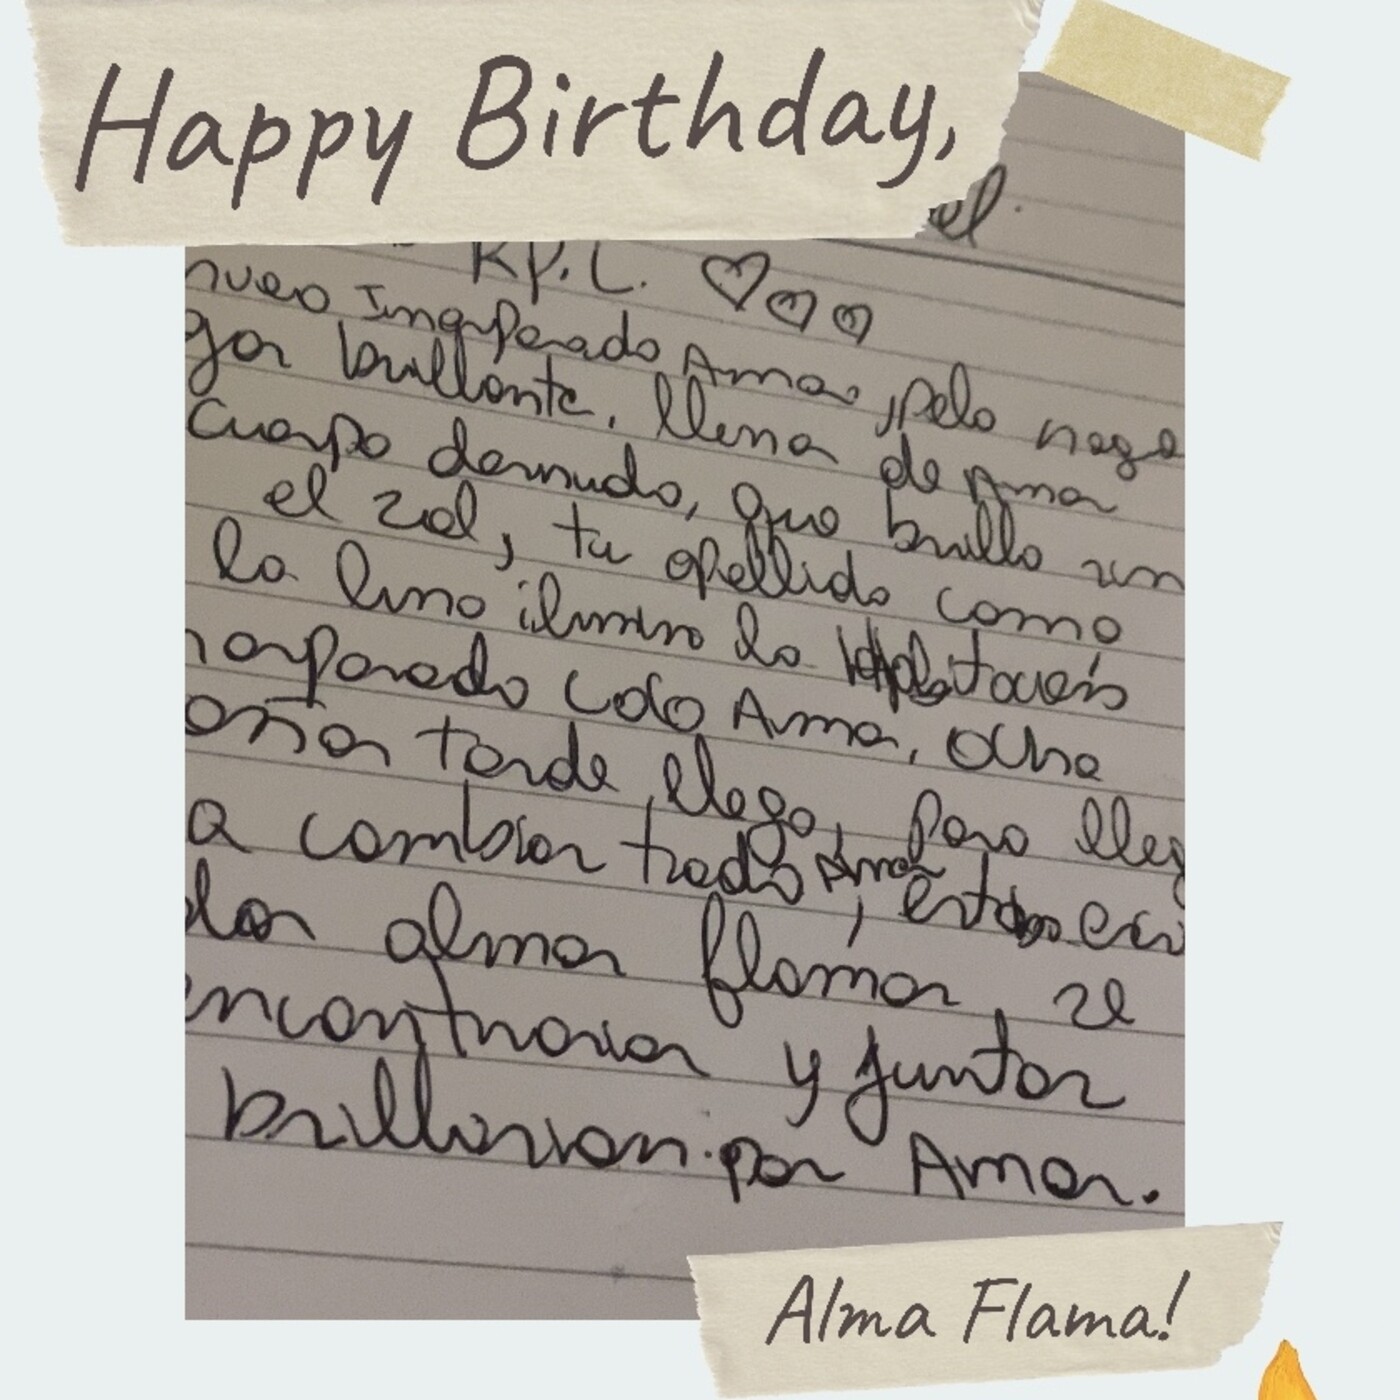 Happy Birthday,
el.
RP.L.
nuevo Inesperado Amor, pelo negro
brillante, llena de Amor
Cuerpo desnudo, que brilla sin
el zol, tu apellido como
la luna ilumino la
inesperado Amor, Ocho
tarde llego, pero lleg
a cambiar todo Amor,
almas flamas, se
encontrarian y juntos
brillarian por Amor.
Alma Flama!